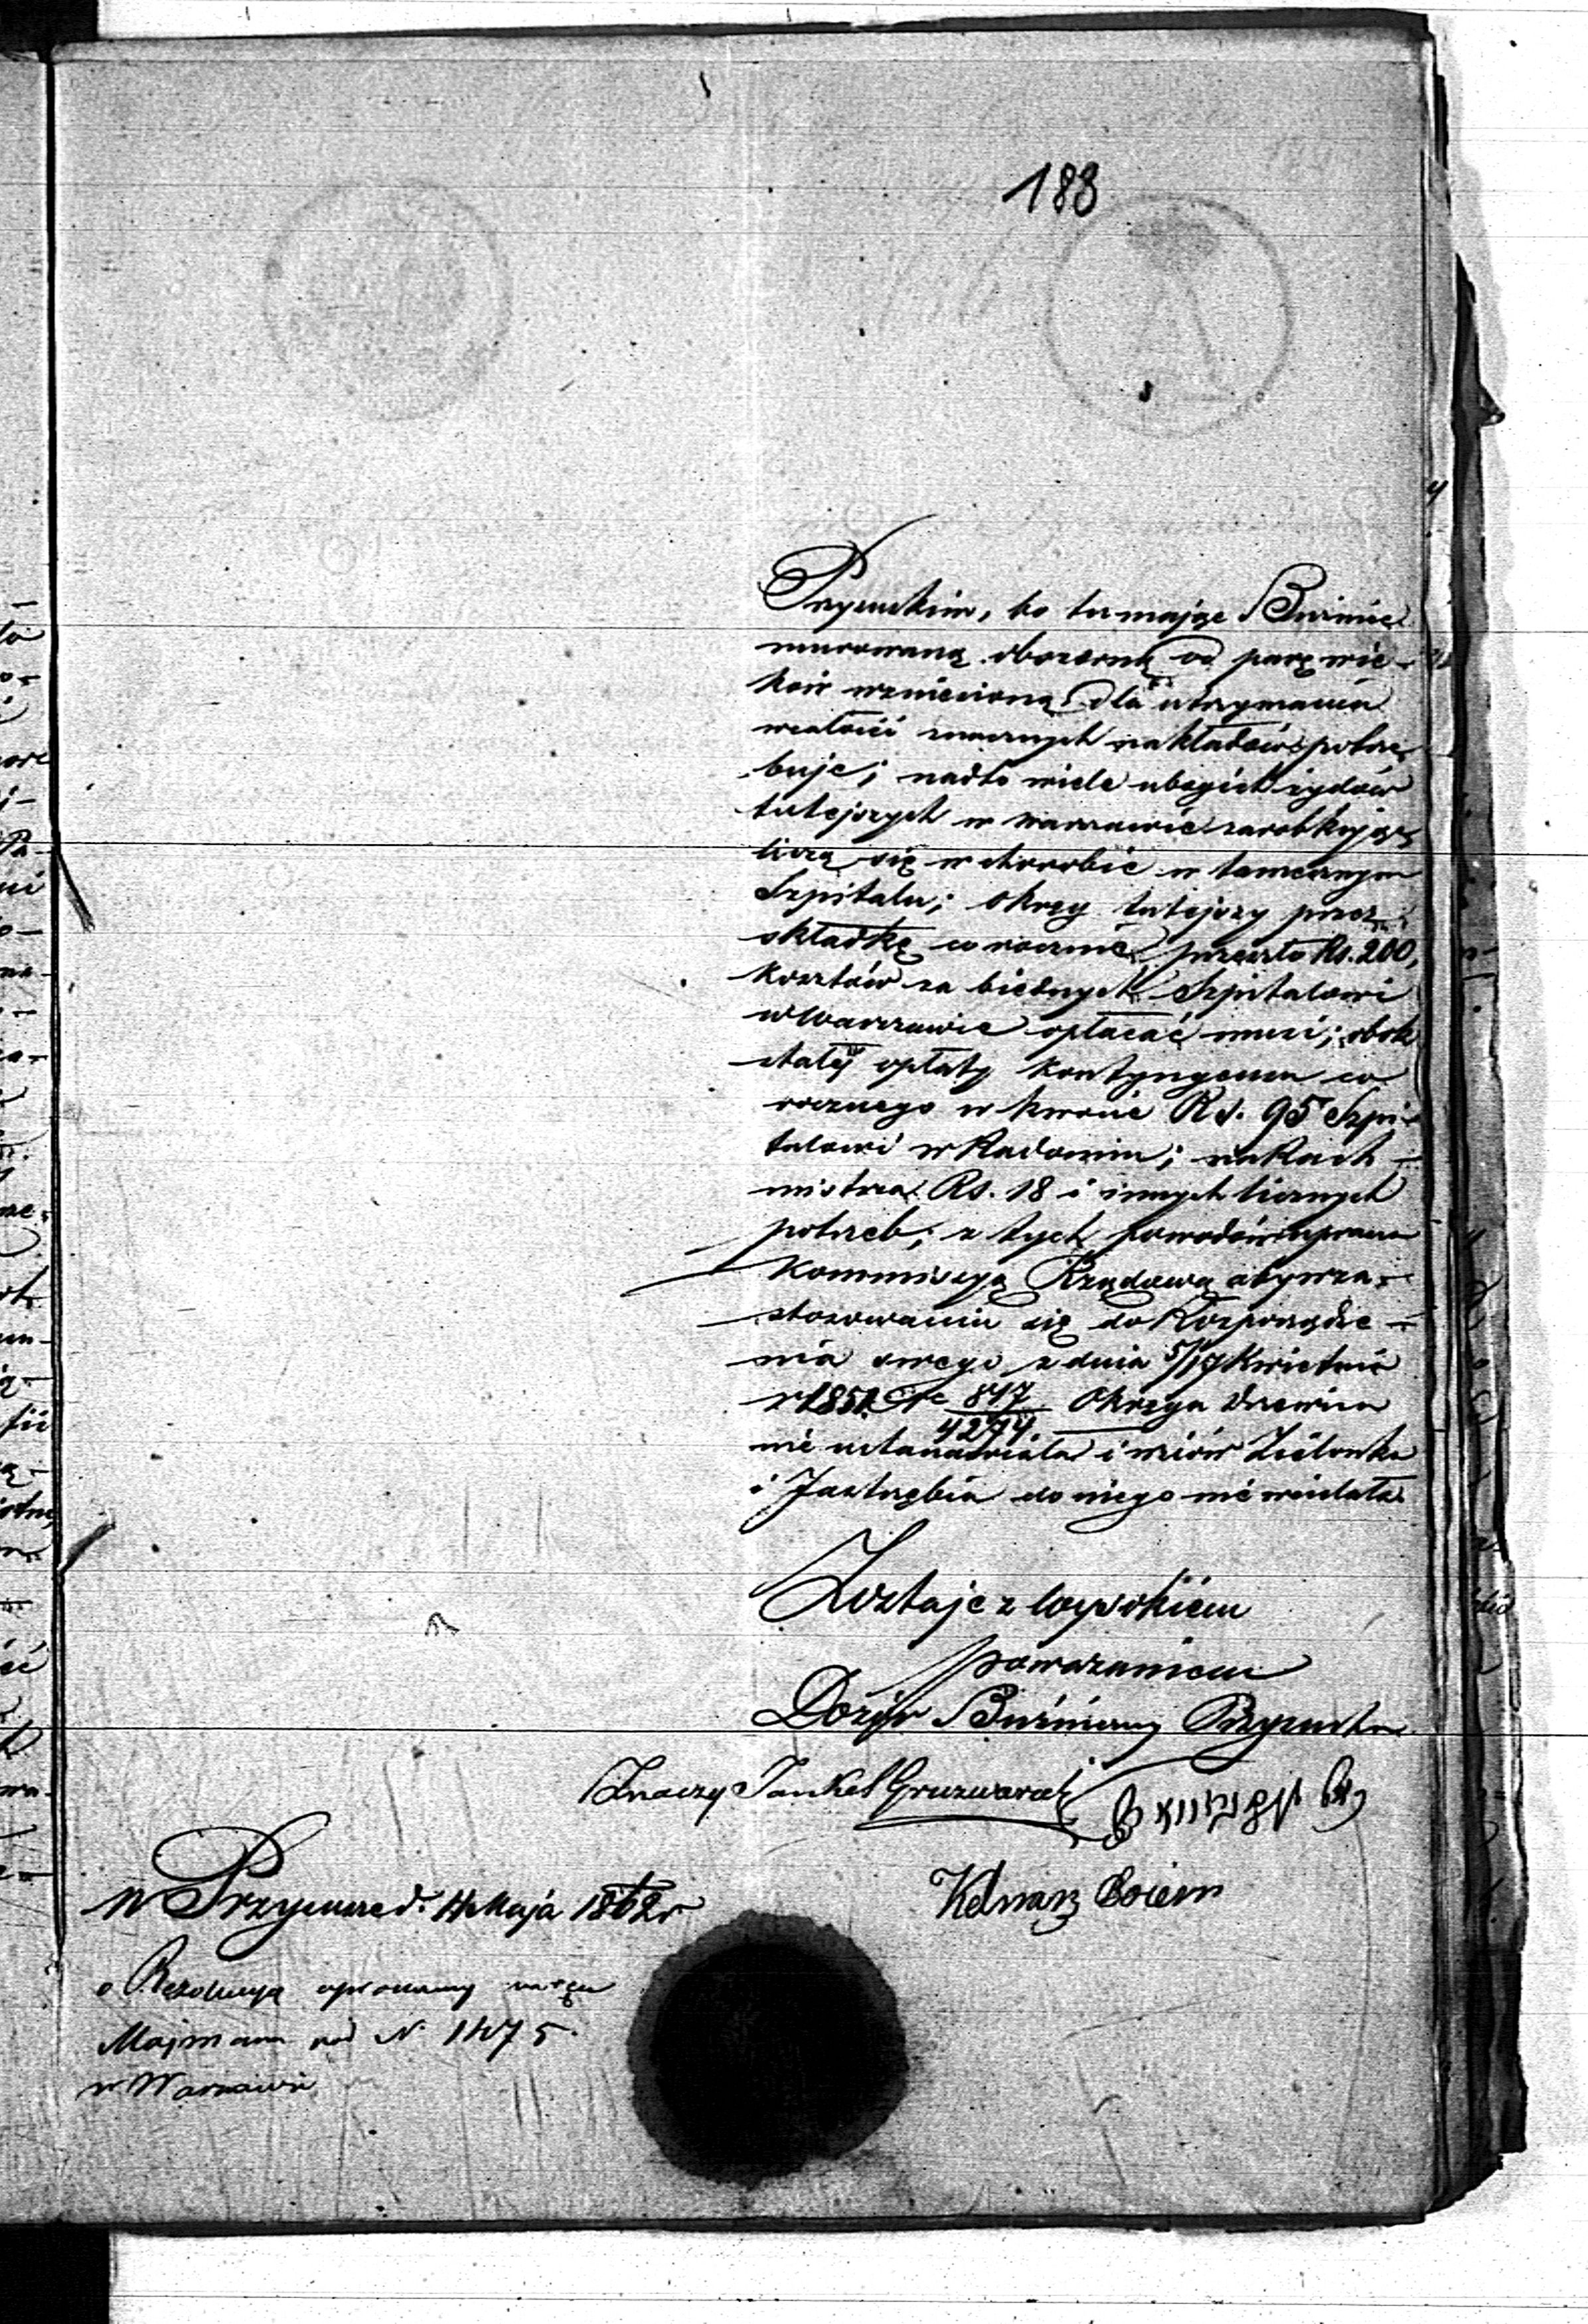 188
Przysuskim, bo tu mając Bużnicę
murowaną obszerną od parę wie-
ków wzniesioną dla utrzymania
w całości znacznych nakładów potrze
buje; nadto wiele ubogich żydów
tutejszych w Warszawie zarobkując
leczą się w chorobie w tamecznym
Szpitalu; okręg tutejszy przez
składkę co rocznie przeszło Rs. 200,
kosztów za biednych Szpitalowi
w Warszawie opłacać musi; obok
stałej opłaty kontyngensu co
rocznego w kwocie Rs. 95 Szpi-
talowi w Radomiu; na Rach-
mistrza Rs. 18 i innych licznych
potrzeb; z tych powodów uprasza
Kommissyą Rządową aby w za-
stosowaniu się do Rozporządze-
nia swego z dnia 5/17 Kwietnia
r 1851 No 847/4274 Okręgu Drzewica
nie ustanawiała i wsiów Zielonka
i Jastrzębia do niego nie wcielała
Zostaje z wysokiém
poważaniem
Dozór Bużniczny Przysucha
Znaczy Jankel Gruzwarcel
Kelman Boiem
w Przysusze d. 14 Maja 1862 r
o Rezolucyą upraszamy na ręce
Majmana pod N. 1475
w Warszawie